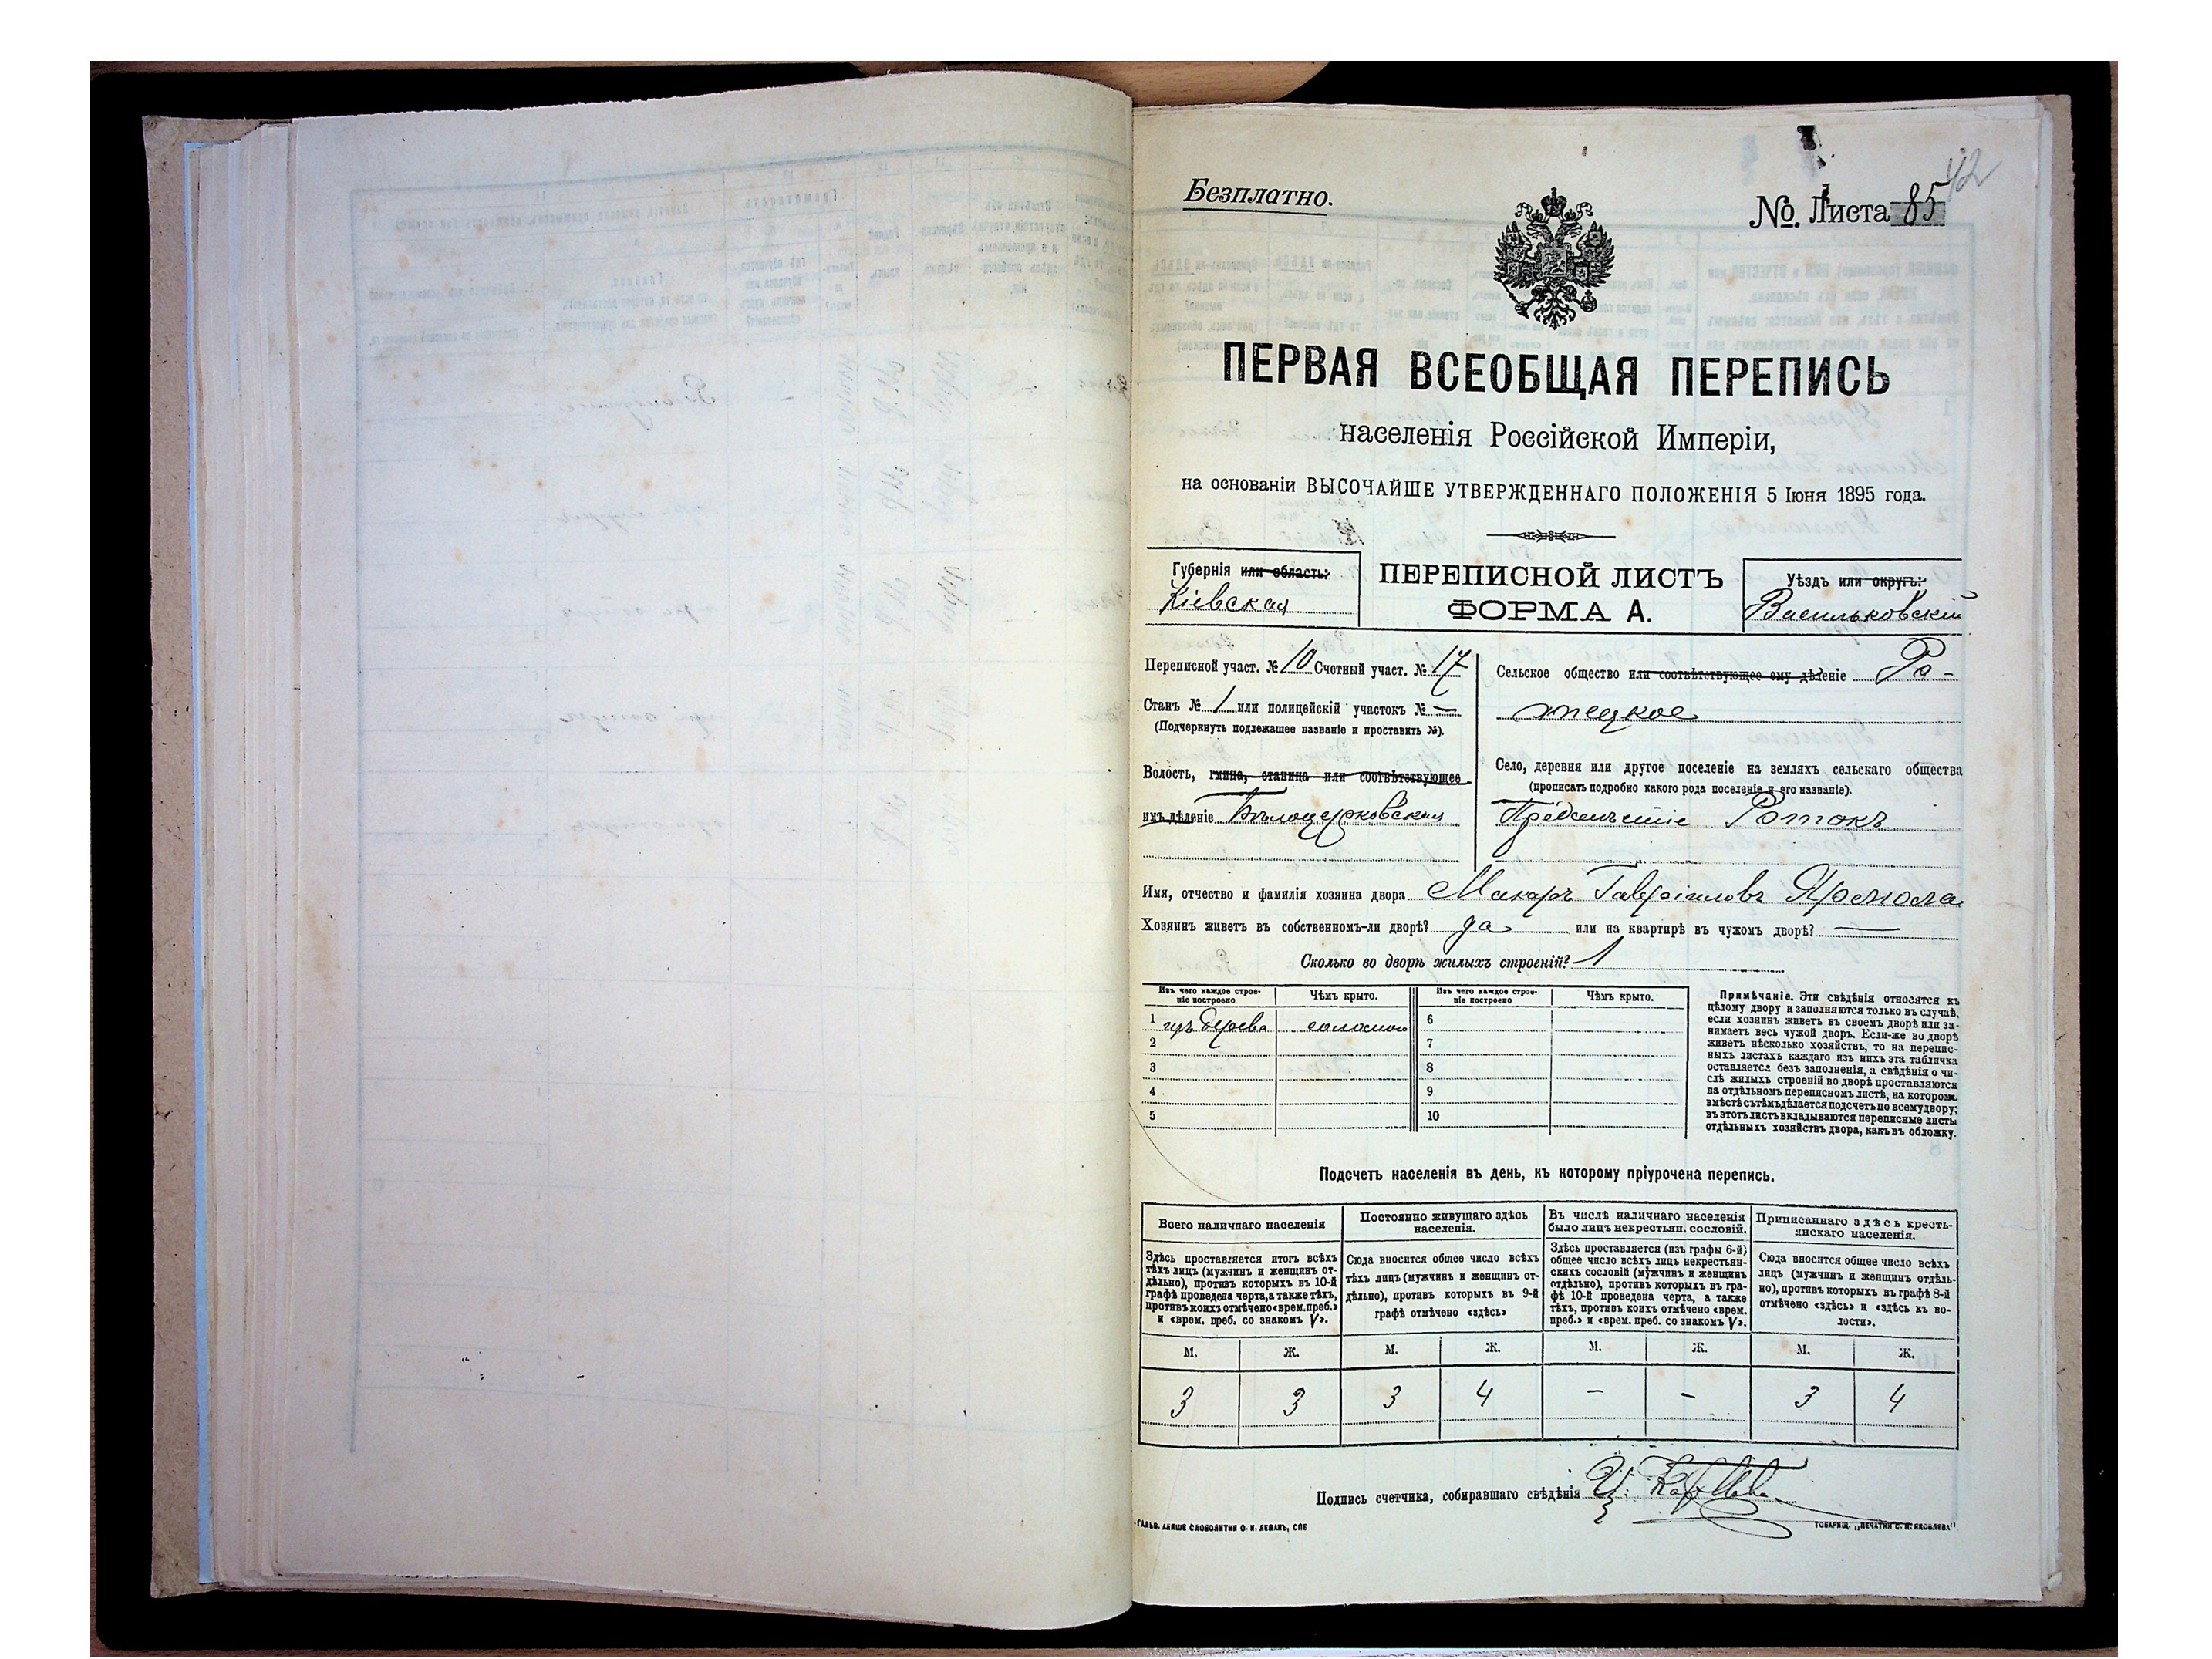 Безплатно.
№ Листа 85
42
ПЕРВАЯ ВСЕОБЩАЯ ПЕРЕПИСЬ
населенія Россійской Имперіи,
на основаніи ВЫСОЧАЙШЕ УТВЕРЖДЕННАГО ПОЛОЖЕНІЯ 5 Іюня 1895 года.
Губернія или область:
Кіевская
ПЕРЕПИСНОЙ ЛИСТЪ
ФОРМА А.
Уѣздъ или округъ:
Васильковскій
Переписной участ. № 10 Счетный участ. № 17
Станъ № 1 или полицейскій участокъ № —
(Подчеркнуть подлежащее названіе и проставить №).
Волость, гмина, станица или соотвѣтствующее
имъ дѣленіе Бѣлоцерковская
Сельское общество или соотвѣтствующее ему дѣленіе Ро-
тецкое
Село, деревня или другое поселеніе на земляхъ сельскаго общества
(прописать подробно какого рода поселеніе и его названіе).
Предмѣстіе Ротокъ
Имя, отчество и фамилія хозяина двора Макаръ Гавріиловъ Ярмола
Хозяинъ живетъ въ собственномъ-ли дворѣ? да или на квартирѣ въ чужомъ дворѣ? —
Сколько во дворѣ жилыхъ строеній? 1
Изъ чего каждое строе-
ніе построено
Чѣмъ крыто.
Изъ чего каждое строе-
ніе построено
Чѣмъ крыто.
1 изъ дерева соломою 6
2 7
3 8
4 9
5 10
Примѣчаніе. Эти свѣдѣнія относятся къ
цѣлому двору и заполняются только въ случаѣ,
если хозяинъ живетъ въ своемъ дворѣ или за-
нимаетъ весь чужой дворъ. Если-же во дворѣ
живетъ нѣсколько хозяйствъ, то на перепис-
ныхъ листахъ каждаго изъ нихъ эта табличка
оставляется безъ заполненія, а свѣдѣнія о чи-
слѣ жилыхъ строеній во дворѣ проставляются
на отдѣльномъ переписномъ листѣ, на которомъ
вмѣстѣ съ тѣмъ дѣлается подсчетъ по всему двору;
въ этотъ листъ вкладываются переписные листы
отдѣльныхъ хозяйствъ двора, какъ въ обложку.
Подсчетъ населенія въ день, къ которому пріурочена перепись.
Всего наличнаго населенія
Здѣсь проставляется итогъ всѣхъ
тѣхъ лицъ (мужчинъ и женщинъ от-
дѣльно), противъ которыхъ въ 10-й
графѣ проведена черта, а также тѣхъ,
противъ коихъ отмѣчено «врем. преб.»
и «врем. преб. со знакомъ V».
Постоянно живущаго здѣсь
населенія.
Сюда вносится общее число всѣхъ
тѣхъ лицъ (мужчинъ и женщинъ от-
дѣльно), противъ которыхъ въ 9-й
графѣ отмѣчено «здѣсь»
Въ числѣ наличнаго населенія
было лицъ некрестьян. сословій.
Здѣсь проставляется (изъ графы 6-й)
общее число всѣхъ лицъ некрестьян-
скихъ сословій (мужчинъ и женщинъ
отдѣльно), противъ которыхъ въ гра-
фѣ 10-й проведена черта, а также
тѣхъ, противъ коихъ отмѣчено «врем.
преб.» и «врем. преб. со знакомъ V».
Приписаннаго здѣсь кресть-
янскаго населенія.
Сюда вносится общее число всѣхъ
лицъ (мужчинъ и женщинъ отдѣль-
но), противъ которыхъ въ графѣ 8-й
отмѣчено «здѣсь» и «здѣсь къ во-
лости».
М. Ж. М. Ж. М. Ж. М. Ж.
3 3 3 4 – – 3 4
Подпись счетчика, собиравшаго свѣдѣнія
ТОВАРИЩ. „ПЕЧАТНИ С. П. ЯКОВЛЕВА"